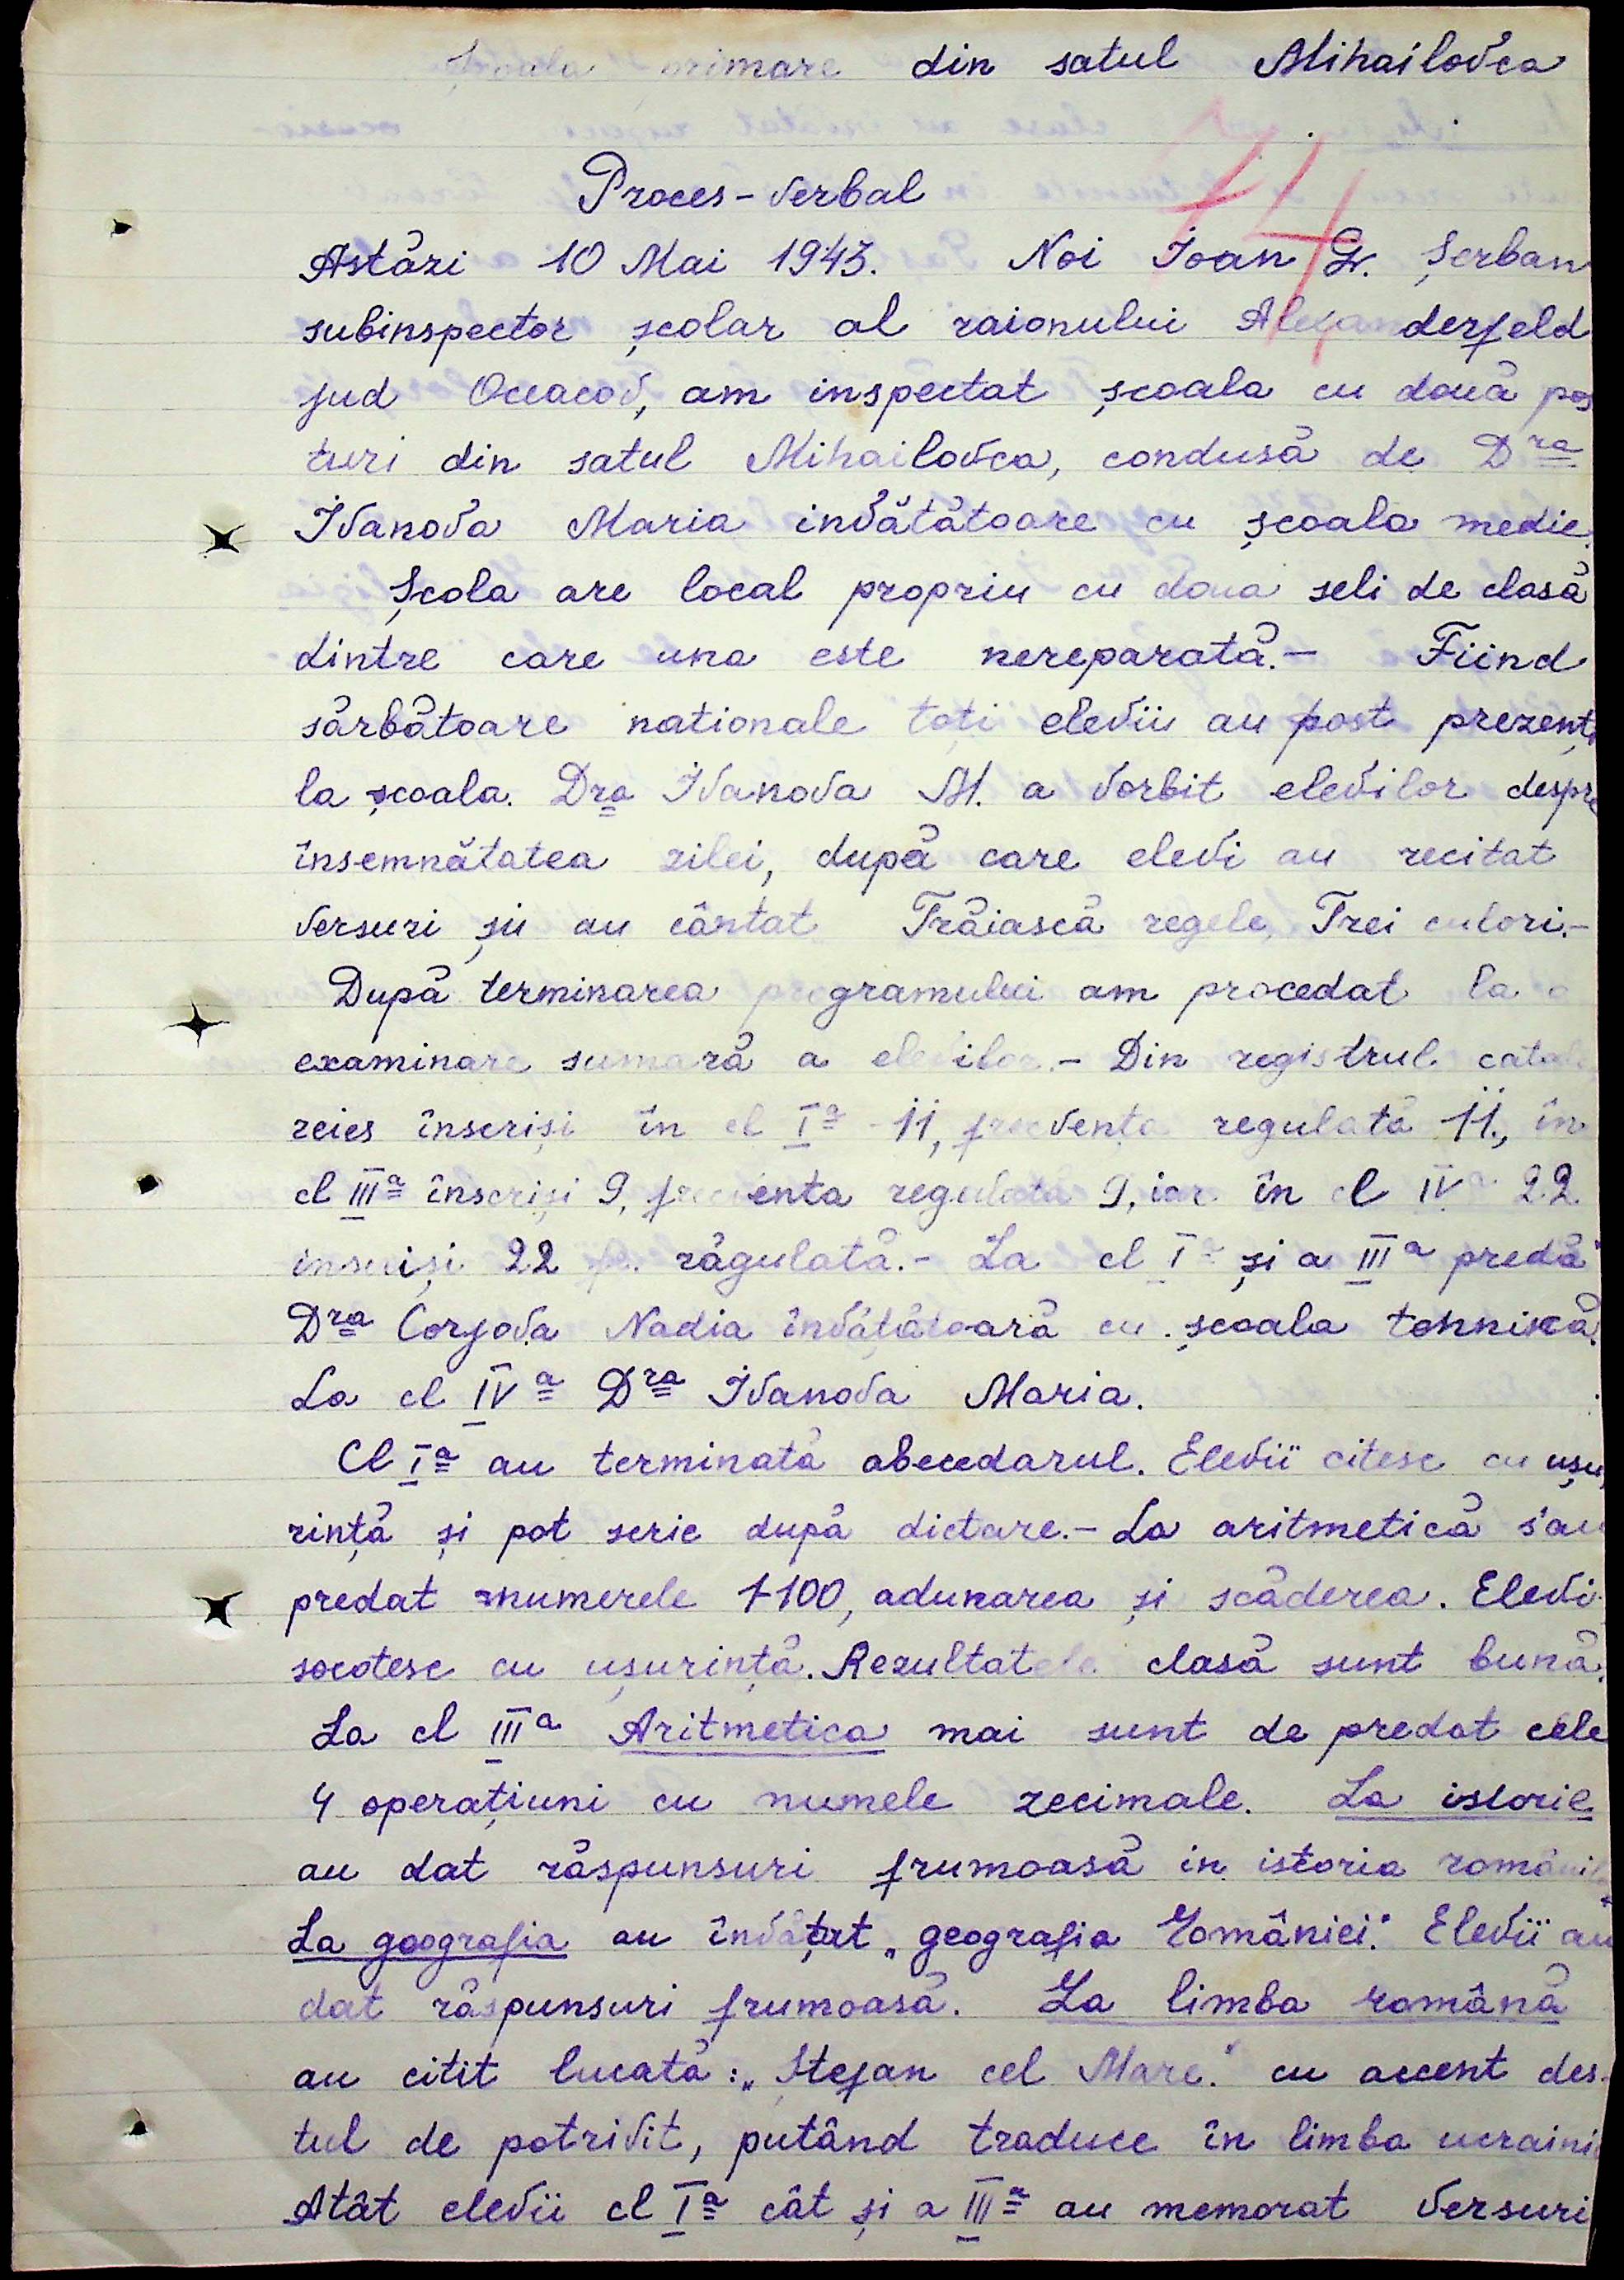 Școala primare din satul Mihailovca
14
Proces-verbal
Astăzi 10 Mai 1943. Noi Ioan Gr. Șerban
subinspector școlar al raionului Alexanderfeld
jud Oceacov, am inspectat școala cu două pos
turi din satul Mihailovca, condusă de Dra
Ivanova Maria invătătoare cu școala medie.
Școla are local propriu cu doua seli de clasă
dintre care una este nereparată.- Fiind
sărbătoare nationale toți elevii au fost prezenți
la școala. Dra Ivanova M. a vorbit elevilor despre
însemnătatea zilei, după care elevi au recitat
versuri și au cântat Trăiască regele, Trei culori.-
După terminarea programului am procedat la o
examinare sumară a elevilor.- Din registrul catal
reies înscriși în cl Ia -11, frecvența regulată 11., în
cl IIIa înscriși 9, frecventa regulată 9, iar în cl IV a 22
inscriși 22 fr. răgulată.- La cl Ia și a IIIa predă
Dra Corjova Nadia învățătoară cu școala tehnică.
La cl IVa Dra Ivanova Maria.
Cl Ia au terminată abecedarul. Elevii citesc cu ușu
rință și pot scrie după dictare.- La aritmetică s'au
predat numerele 1-100, adunarea și scăderea. Elevi
socotesc cu ușurință. Rezultatele clasă sunt bună.
La cl IIIa Aritmetica mai sunt de predat cele
4 operațiuni cu numele zecimale. La istorie
au dat răspunsuri frumoasă in istoria românilor
La geografia au învățat „geografia României." Elevii au
dat răspunsuri frumoasă. La limba română
au citit lucată: „Ștefan cel Mare." cu accent des-
tul de potrivit, putând traduce în limba ucraini
Atât elevii cl Ia cât și a IIIa au memorat versuri